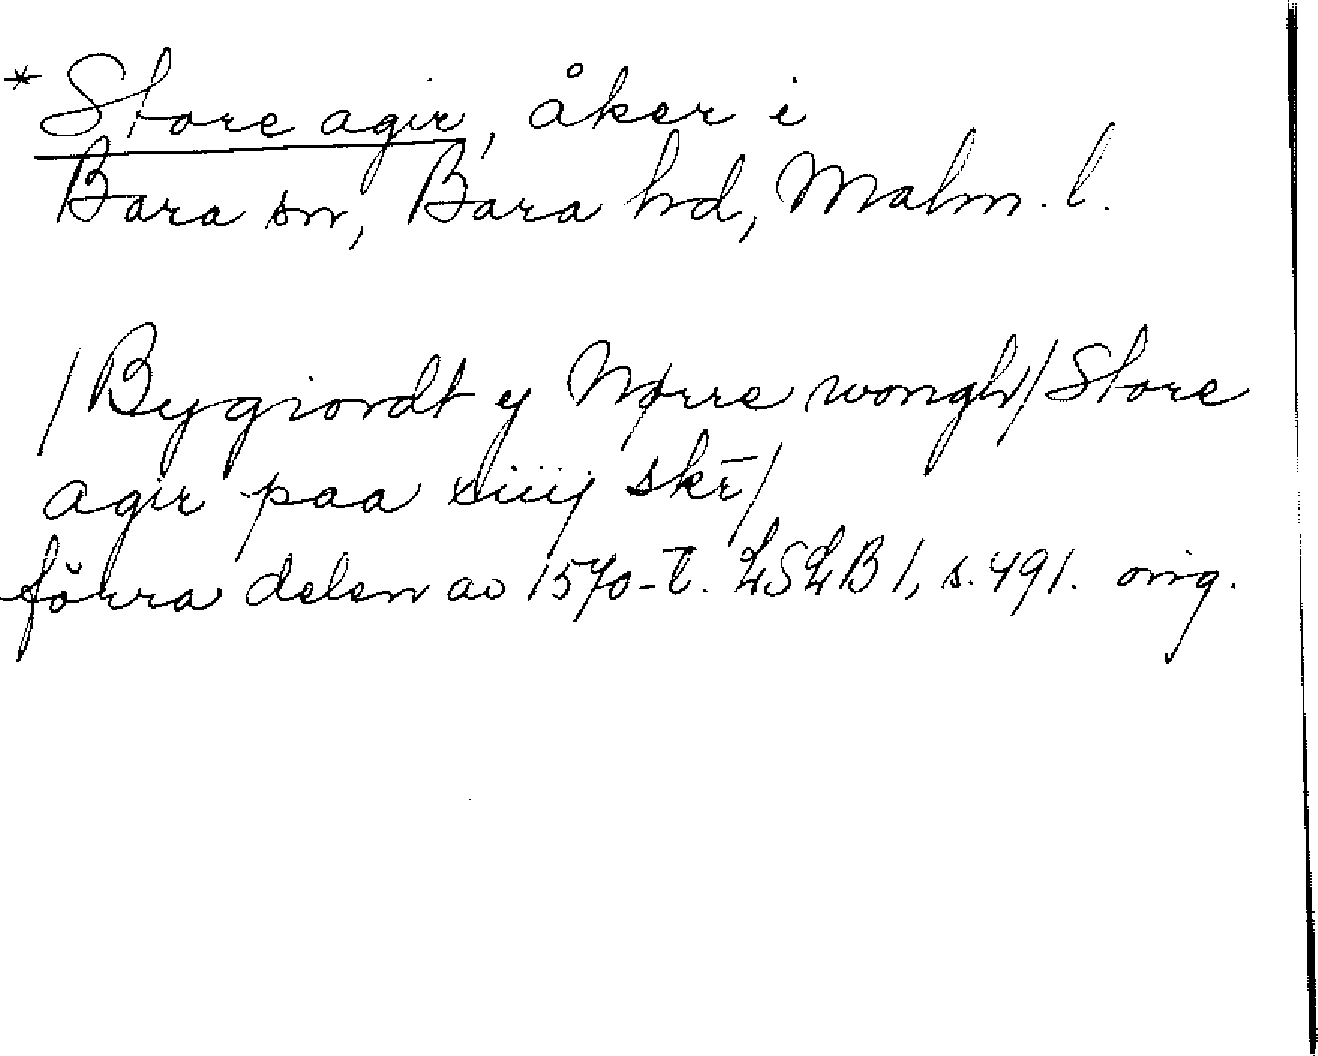 * Store agir, åker i
Bara sn, Bara hd, Malm. l.
/Bygiordt y Nørre wongh/Store
agir paa xiiij skr̄/
förra delen av 1570-t. LSLB 1, s. 491. orig.